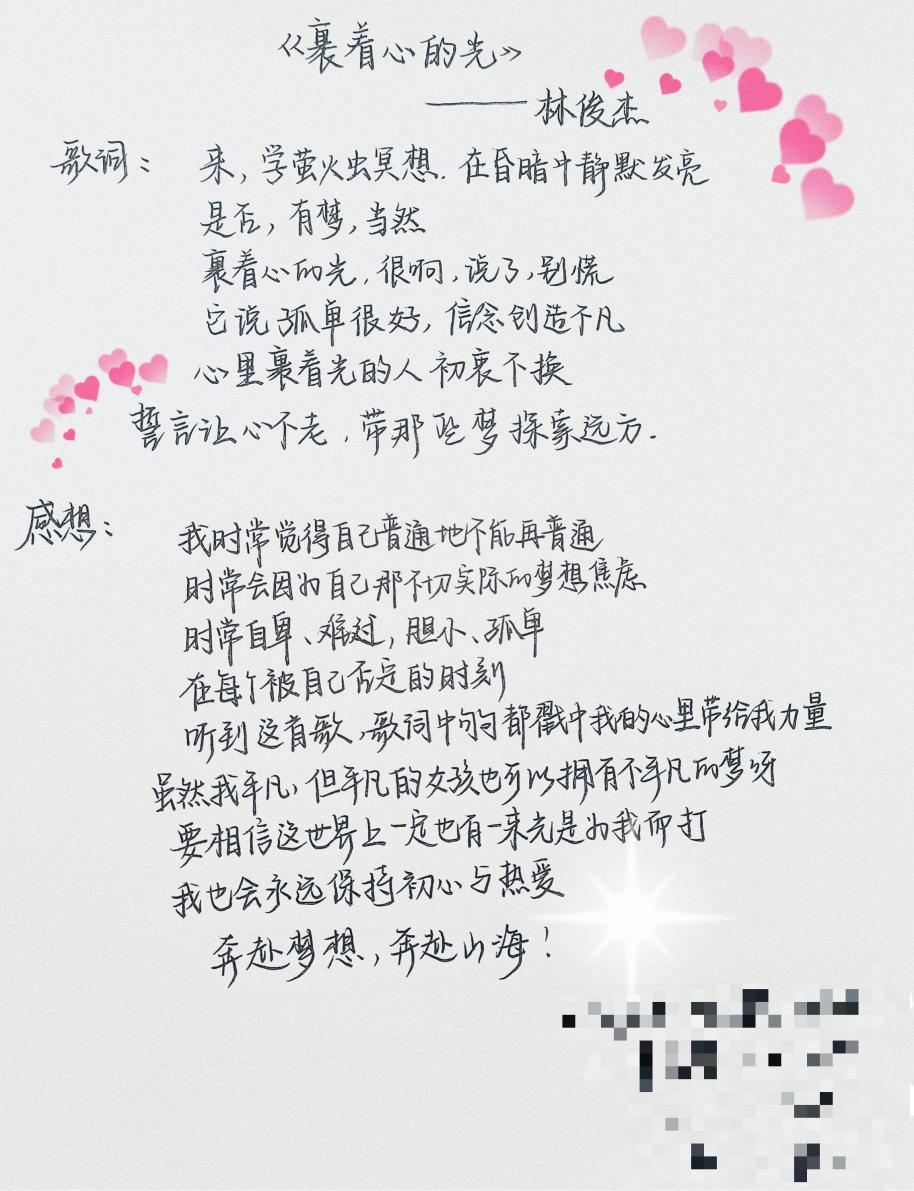 《裹着心的光》
——林俊杰
歌词：来，学萤火虫冥想.在昏暗中静默发亮
是否，有梦，当然
裹着心的光，很响，说了，别慌
它说孤单很好，信念创造不凡
心里裹着光的人初衷不换
誓言让心不老，带那些梦探索远方.
感想：我时常觉得自己普通地不能再普通
时常会因为自己那不切实际的梦想焦虑
时常自卑、难过，胆小、孤单
在每个被自己否定的时刻
听到这首歌，歌词中句句都戳中我的心里带给我力量
虽然我平凡，但平凡的女孩也可以拥有不平凡的梦呀
要相信这世界上一定也有一束光是为我而打
我也会永远保持初心与热爱
奔赴梦想，奔赴山海！